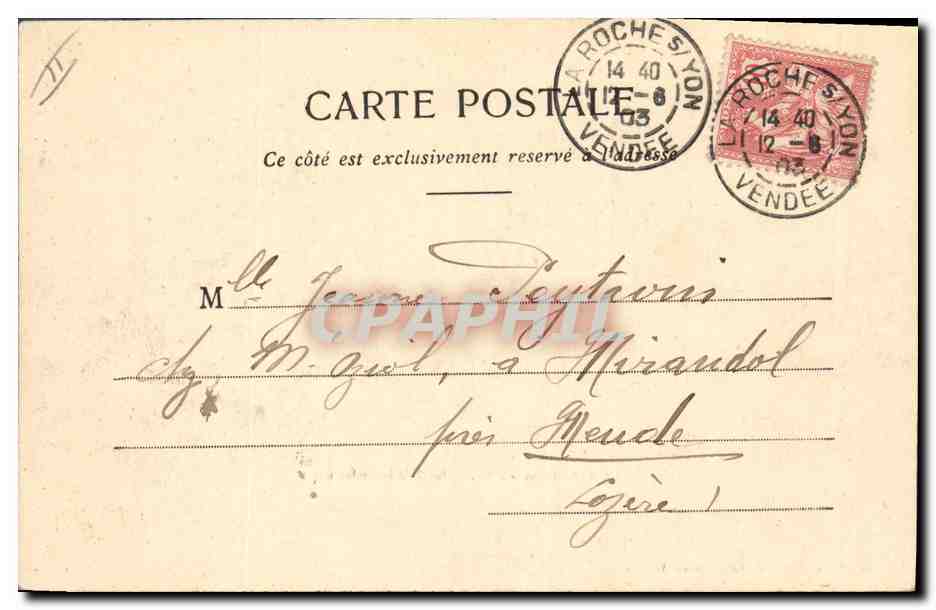 11
CARTE POSTALE
Ce côté est exclusivement reservé à l'adresse
LA ROCHE S/YON
14 40
12 - 6
03
VENDÉE
LA ROCHE S/YON
14 40
12 - 6
03
VENDÉE
Mlle Jeanne Peytavin
chez M. Oziol, à Mirandol
près Mende
Lozère
CPAPHIL